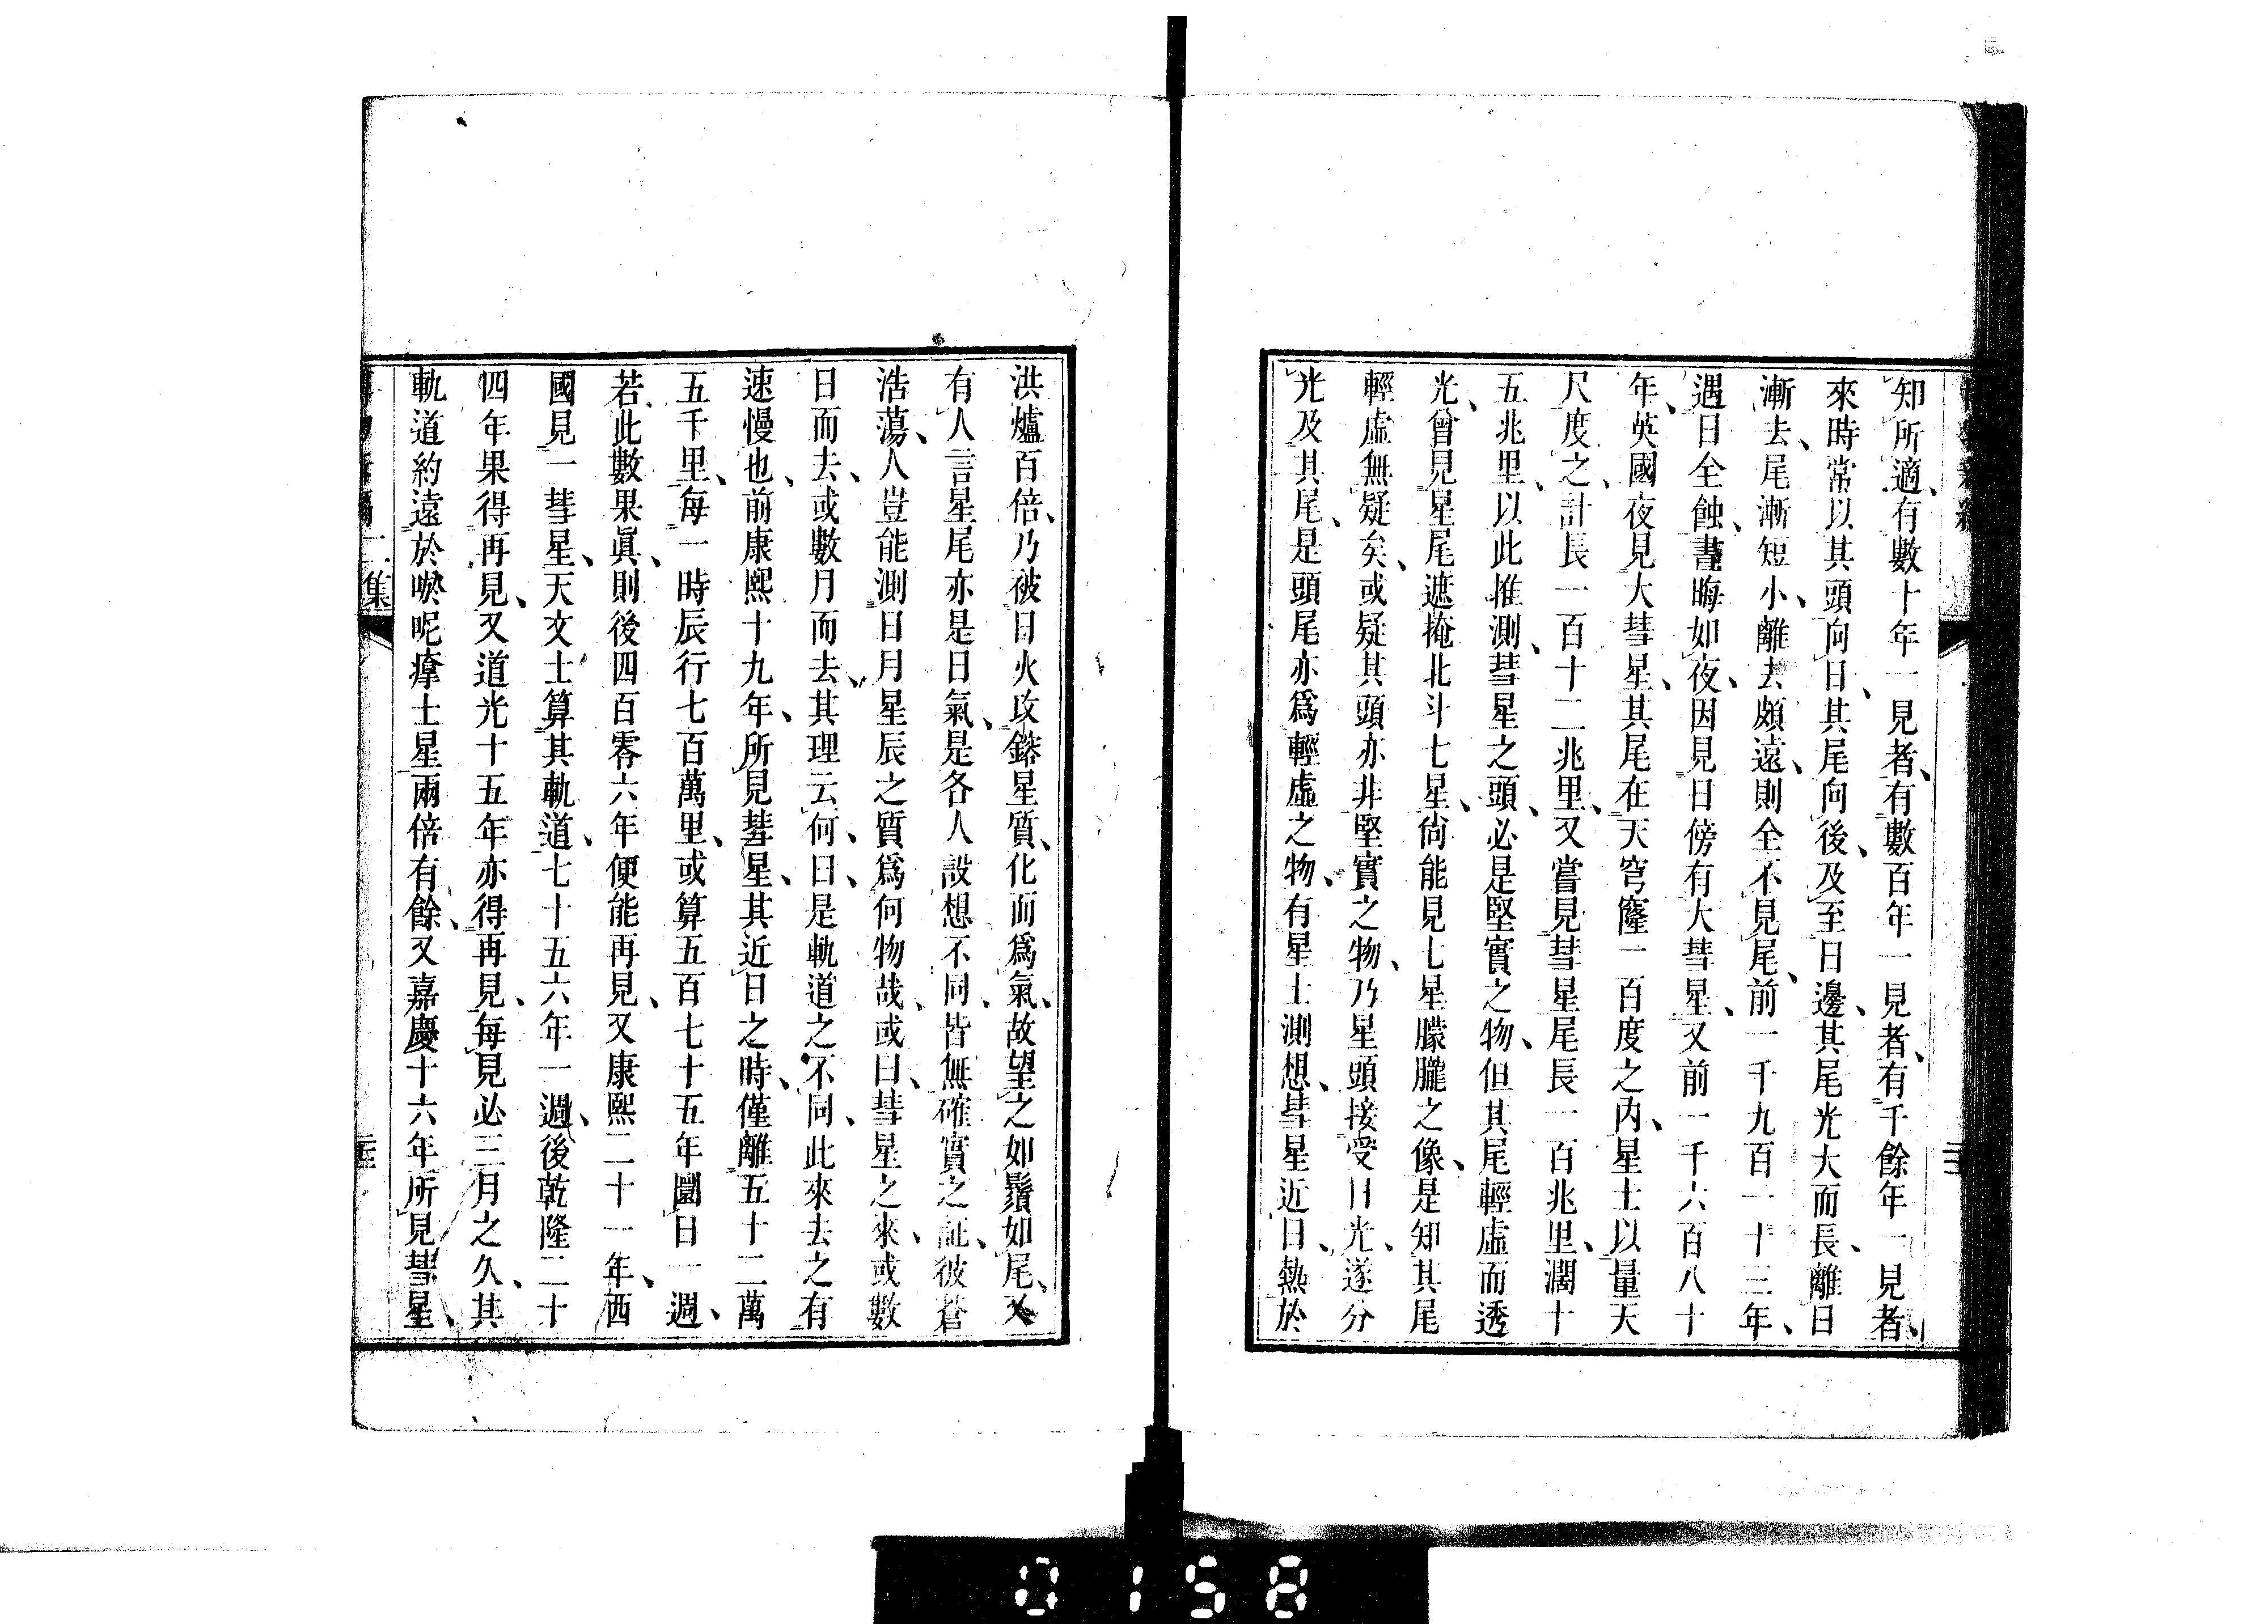 知所適、有數十年一見者、有數百年一見者、有千餘年一見者、
來時常以其頭向日、其尾向後、及至日邊、其尾光大而長、離日
漸去、尾漸短小、離去頗遠、則全不見尾、前一千九百一十三年、
遇日全蝕、晝晦如夜、因見日傍有大彗星、又前一千六百八十
年、英國夜見大彗星、其尾在天穹窿一百度之內、星士以量天
尺度之、計長一百十二兆里、又嘗見彗星尾長一百兆里、濶十
五兆里、以此推測、彗星之頭、必是堅實之物、但其尾輕虛而透
光、曾見星尾遮掩北斗七星、尙能見七星朦朧之像、是知其尾
輕虛無疑矣、或疑其頭亦非堅實之物、乃星頭接受日光、遂分
光及其尾、是頭尾亦爲輕虛之物、有星士測想、彗星近日、熱於
洪爐百倍、乃被日火攻鎔星質、化而爲氣、故望之如鬚如尾、又
有人言星尾亦是日氣、是各人設想不同、皆無確實之証、彼蒼
浩蕩、人豈能測日月星辰之質爲何物哉、或曰、彗星之來、或數
日而去、或數月而去、其理云何、曰、是軌道之不同、此來去之有
速慢也、前康熙十九年、所見彗星、其近日之時、僅離五十二萬
五千里、每一時辰行七百萬里、或算五百七十五年圜日一週、
若此數果眞、則後四百零六年便能再見、又康熙二十一年、西
國見一彗星、天文士算其軌道、七十五六年一週、後乾隆二十
四年果得再見、又道光十五年亦得再見、每見必三月之久、其
軌道約遠於㗀呢瘴士星兩倍有餘、又嘉慶十六年所見彗星、
二集